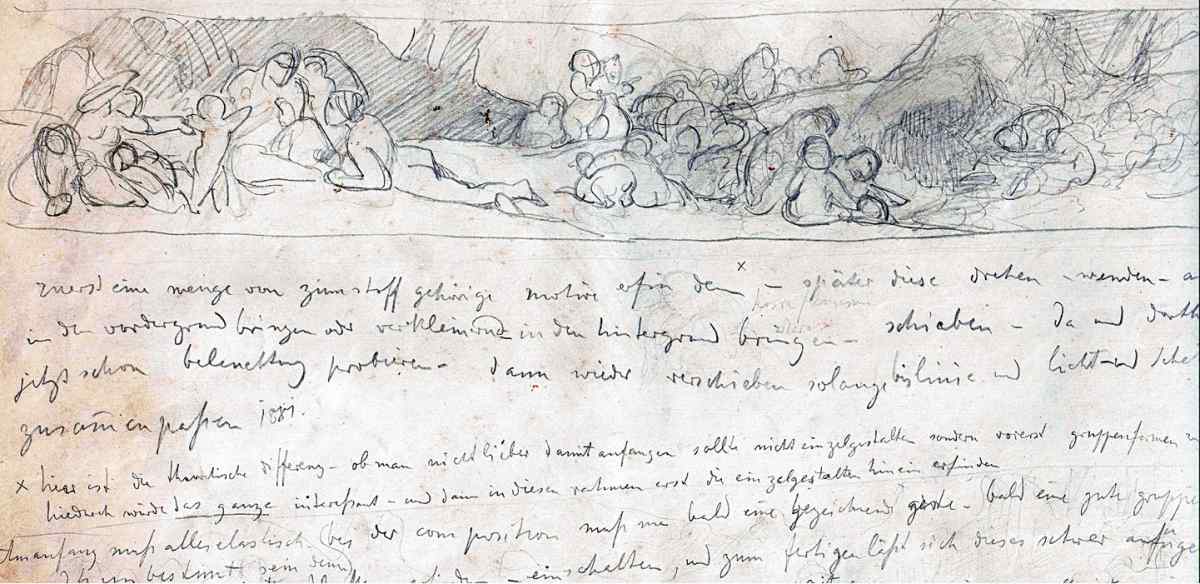 zuerst eine menge von zum stoff gehörige motive erfinden x – später diese drehen – wenden –
in den vordergrund bringen oder verkleinernd in den hintergrund bringen – schieben – da und dort
jetzt schon beleuchtung probieren – dann wieder verschieben solange bis linie und licht und
zusam̄en passen 1881.
x hier ist die theoretische differenz – ob man nicht lieber damit anfangen sollte nicht einzelgestalten sondern vorerst gruppenformen
hiedurch würde das ganze interessant – und dann in diesen rahmen erst die einzelgestalten hinein erfinden
Am anfang muß alles elastisch bei der composition muß bald eine gezeichnet – bald eine gute gruppe
einschalten, und zum fertigen läßt sich dieses schwer